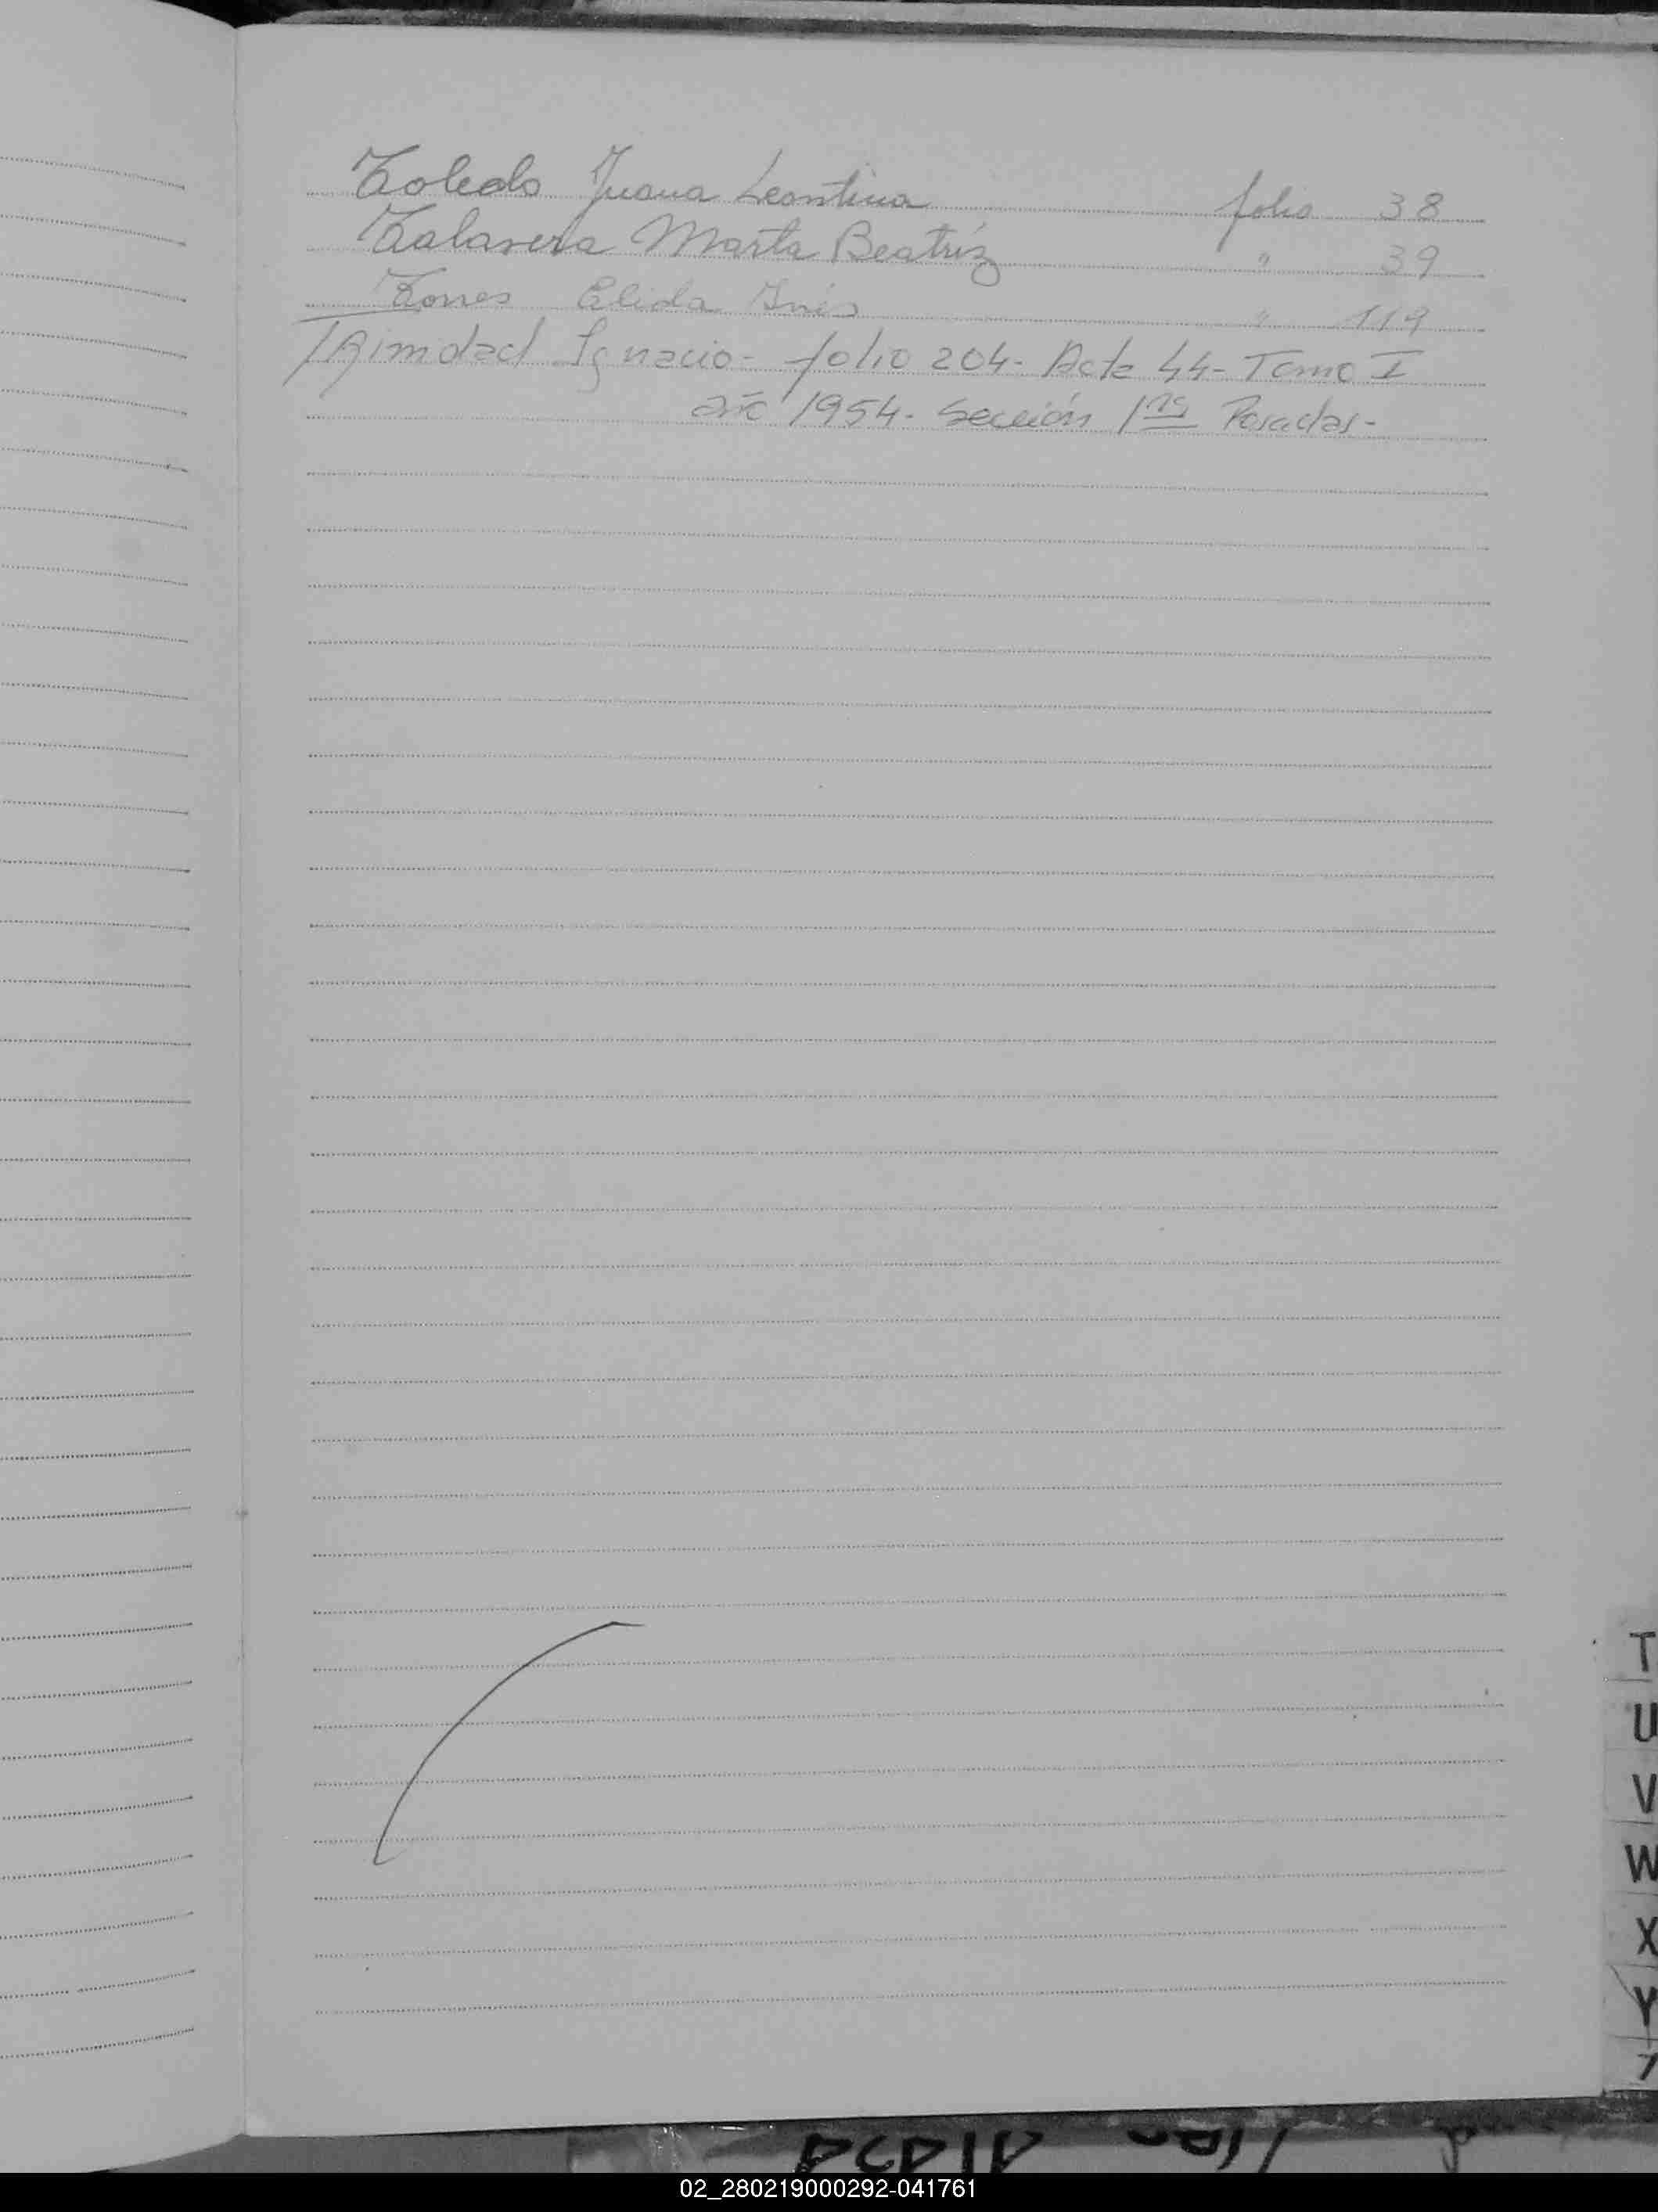 Toledo Juana Leontina folio 38
Talavera Marta Beatríz " 39
Torres Elida Inés " 119
TRimidad Ignacio - folio 204 - Acta 44 - Tomo I
año 1954 - Sección 1ra Posadas -
T
U
V
W
X
Y
Z
02_280219000292-041761